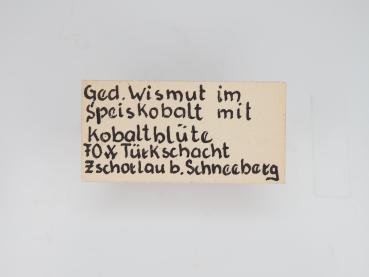 Ged. Wismut im
Speiskobalt mit
Kobaltblüte
Türkschacht
Zschorlau b. Schneeberg